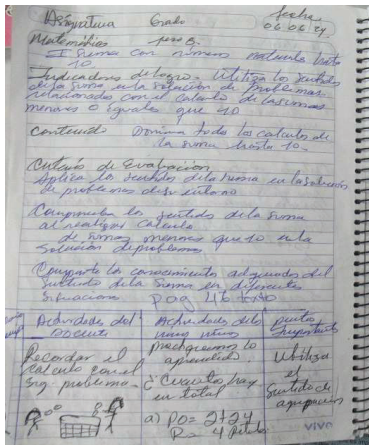 Asignatura Grado fecha
Matemática 06 06 24
I Suma con números naturales hasta
10
Indicadores de logro. Utiliza los sentidos
de la suma en la solución de problemas
relacionados con el calculo de las sumas
menores o iguales que 10
Contenido Domina todo los calculos de
la suma hasta 10.
de Evaluación
Aplica los sentidos de la suma en la solución
de problemas de su entorno
Comprueba los sentidos de la suma
al realizar calculo
de sumas menores que 10 en la
solución de problemas
Comparte los conocimientos adquiridos del
sentido de la suma en diferentes
situaciones pag 46 texto
Actividades del
Docente
Actividades de los
niños niñas
puntos
Importante
Recordar el
calculo con el
sig. problema.
practiquemos lo
aprendido.
¿Cuantos hay
en total
a) PO= 2+2
R= 4
Utiliza
el
Sentido de
agrupación
vivo